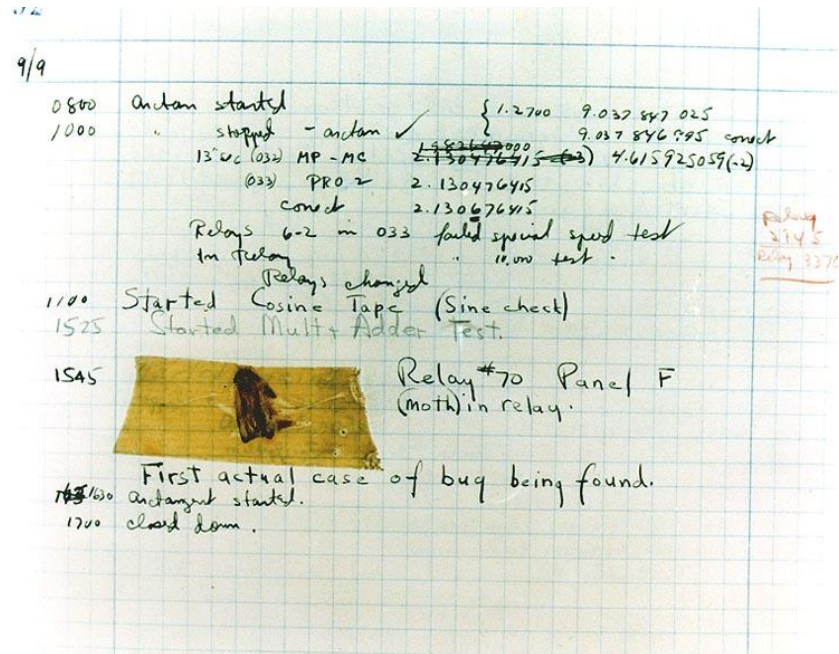 9/9
0800 Antan started
1000 " stopped - antan ✓ { 1.2700 9.037 847 025
9.037 846 995 conect
13"sec (032) MP - MC 2.130476415 4.615925059(-2)
(033) PRO 2 2.130476415
conect 2.130676415
Relays 6-2 in 033 failed special speed test
In Relay " 10,000 test .
Relay
2145
Relay 3370
Relays changed
1100 Started Cosine Tape (Sine check)
1525 Started Mult + Adder Test.
1545 Relay #70 Panel F
(moth) in relay.
First actual case of bug being found.
1630 antangent started.
1700 closed down.